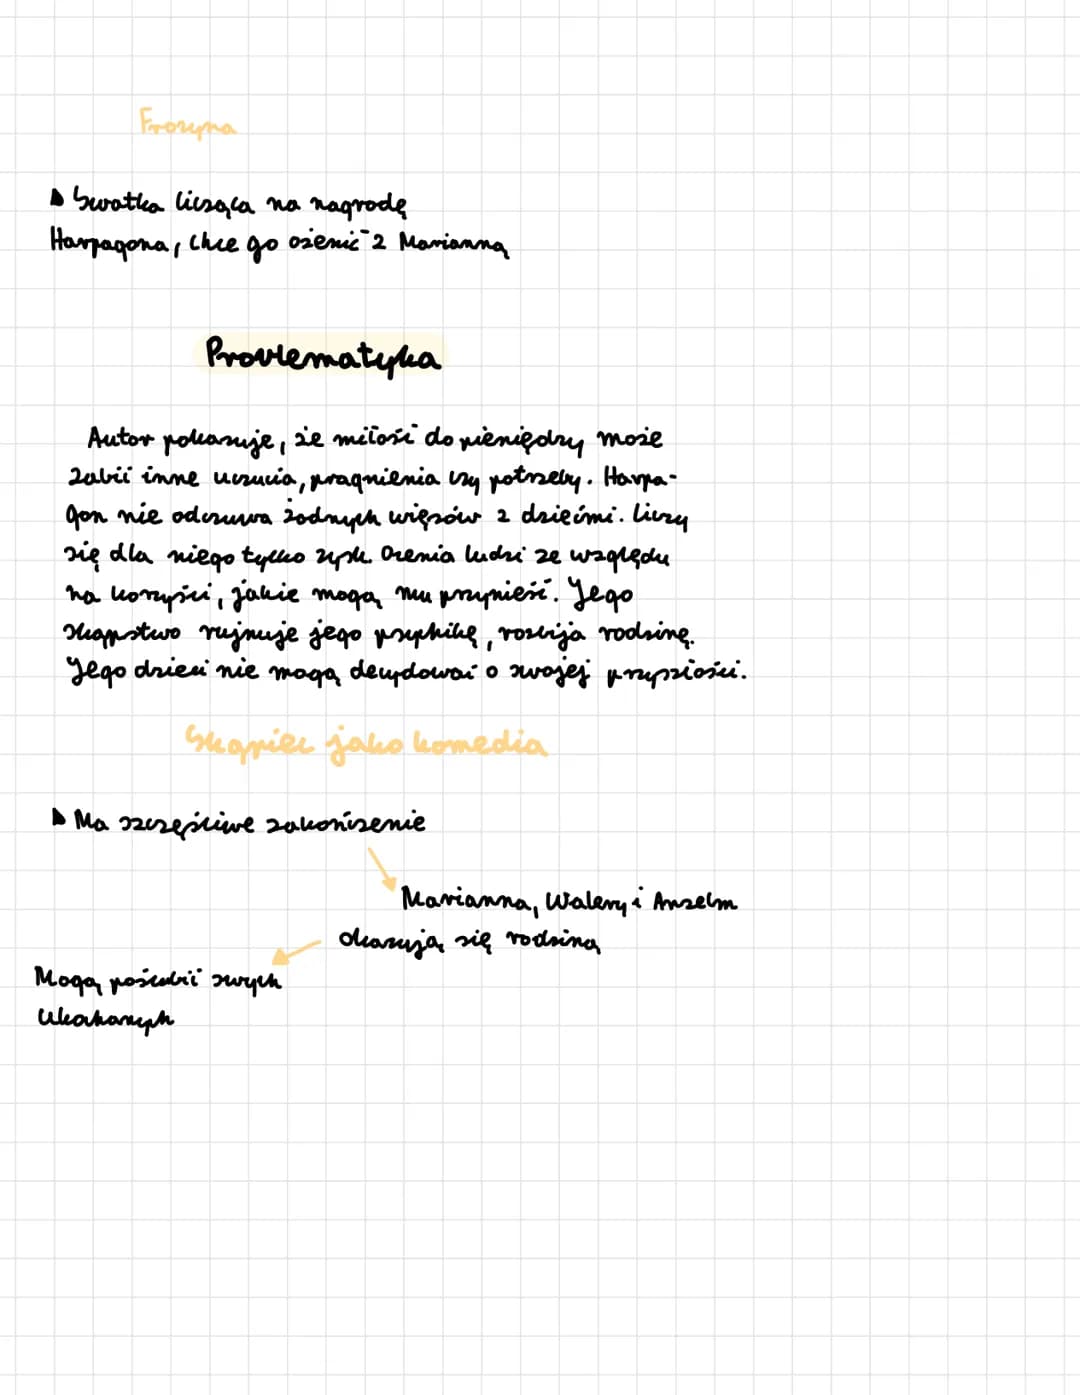 Frozyna
Swatka licząca na nagrodę
Harpagona, chce go ożenić z Marianną
Problematyka
Autor pokazuje, że miłość do pieniędzy może
zabić inne uczucia, pragnienia czy potrzeby. Harpa-
gon nie odczuwa żadnych więzów z dziećmi. Liczy
się dla niego tylko zysk. Ocenia ludzi ze względu
na korzyści, jakie mogą mu przynieść. Jego
skąpstwo rujnuje jego psychikę, rozbija rodzinę.
Jego dzieci nie mogą decydować o swojej przyszłości.
Skąpiec jako komedia
Ma szczęśliwe zakończenie
Marianna, Walery i Anzelm
okazują się rodziną
Mogą poślubić swych
ukochanych